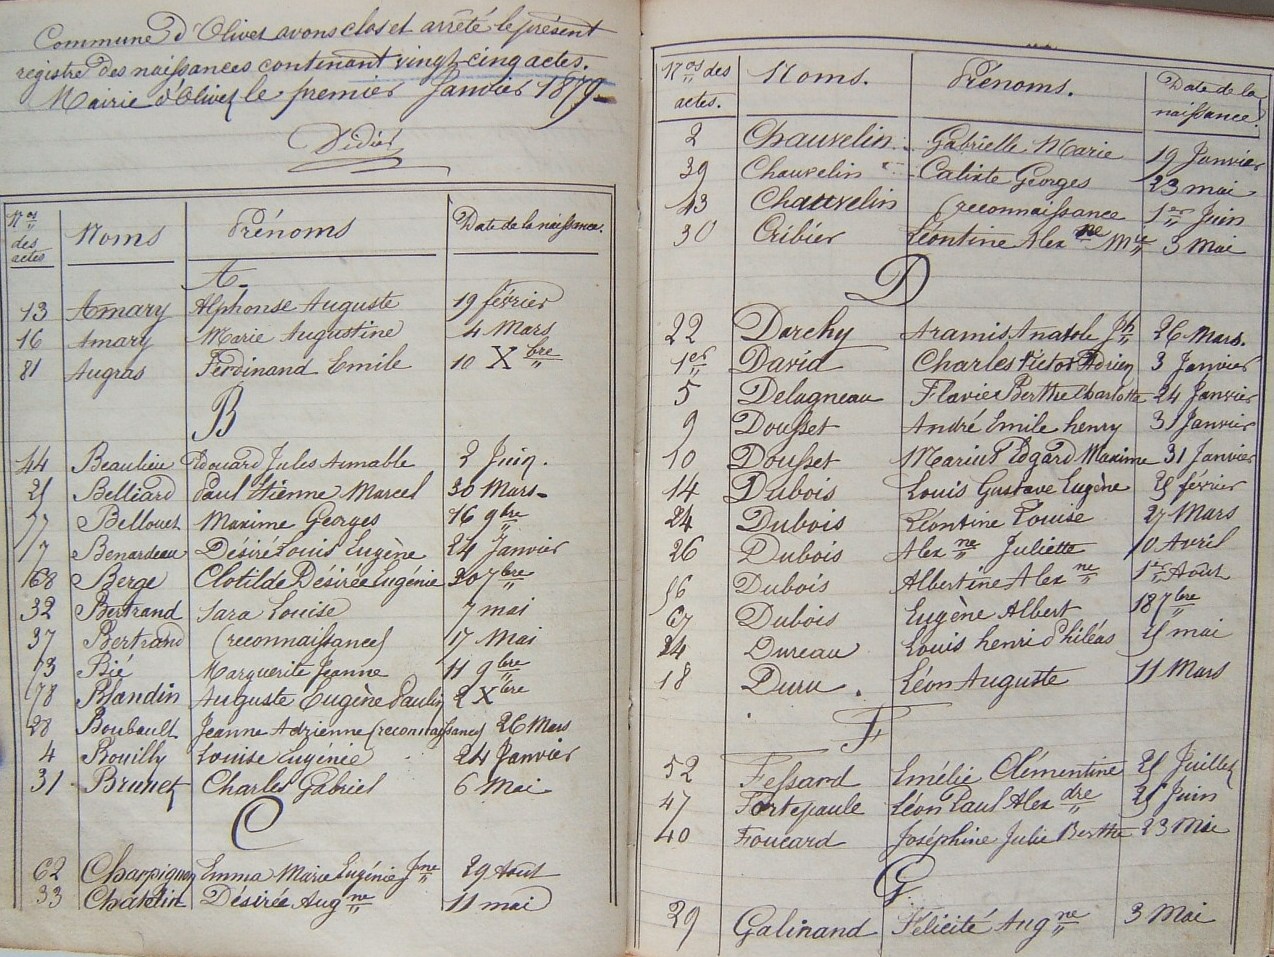 Commune d'Olivet avons clos et arrêté le présent
registre des naissances contenant vingt-cinq actes.
Mairie d'Olivet le premier Janvier 1879
Didier
Nos des actes Noms Prénoms Date de la naissance.
A
13 Amary Alphonse Auguste 19 février
16 Amary Marie Augustine 4 Mars
81 Augras Ferdinand Emile 10 Xbre
B
44 Beaulieu Edouard Jules Aimable 2 Juin.
21 Belliard Paul Etienne Marcel 30 Mars
77 Bellouet Maxime Georges 16 9bre
7 Benardeau Désiré Louis Eugène 24 Janvier
68 Berge Clotilde Désirée Eugénie 30 7bre
32 Bertrand Sara Louise 7 mai
37 Bertrand (reconnaissance) 17 Mai
73 Bié Marguerite Jeanne 11 9bre
78 Blandin Auguste Eugène Paulin 2 Xbre
28 Boubault Jeanne Adrienne (reconnaissance) 26 Mars
4 Bouilly Louise Eugénie 24 Janvier
31 Brunet Charles Gabriel 6 Mai
C
62 Charpignon Emma Marie Eugénie Jne 29 Aout
33 Chatelin Désirée Augne 11 mai
Nos des actes. Noms. Prénoms. Date de la naissance.
2 Chauvelin Gabrielle Marie 19 Janvier
39 Chauvelin Calixte Georges 23 mai
43 Chauvelin (reconnaissance 1er Juin
30 Cribier Léontine Alexne Mie 3 Mai
D
22 Darchy Aramis Anatole Jh 26 Mars.
1er David Charles Victor Adrien 3 Janvier
5 Delagneau Flavie Berthe Charlotte 24 Janvier
9 Dousset André Emile henry 31 Janvier
10 Dousset Marius Edgard Maxime 31 Janvier
14 Dubois Louis Gustave Eugène 25 février
24 Dubois Léontine Louise 27 Mars
26 Dubois Alexne Juliette 10 Avril
56 Dubois Albertine Alexne 1er Aout
67 Dubois Eugène Albert 18 7bre
24 Dureau Louis henri Philéas 25 mai
18 Duru Léon Auguste 11 Mars
F
52 Fessard Emélie Clémentine 25 Juillet
47 Fortepaule Léon Paul Alexdre 25 Juin
40 Foucard Joséphine Julie Berthe 23 Mai
G
29 Galinand Félicité Augne 3 Mai